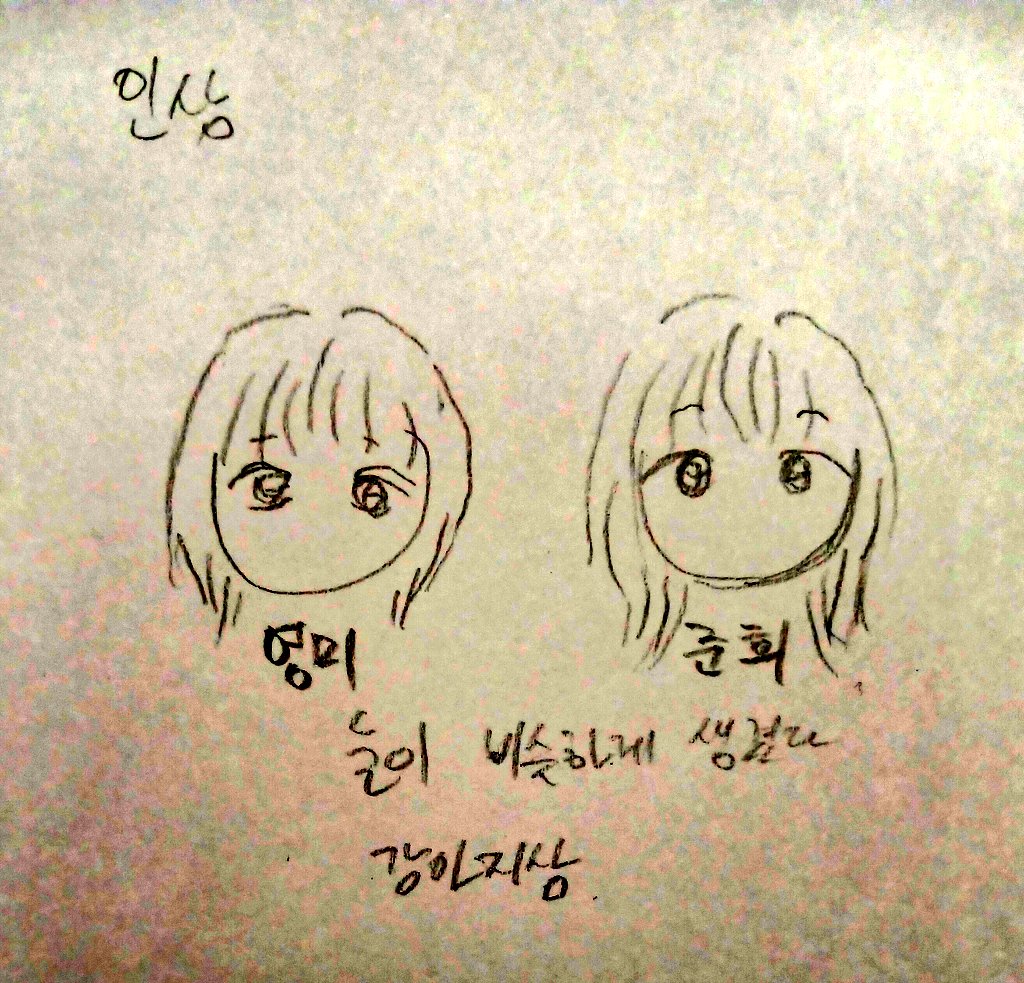 인상
영미 준희
눈이 비슷하게 생겼다
강아지상.